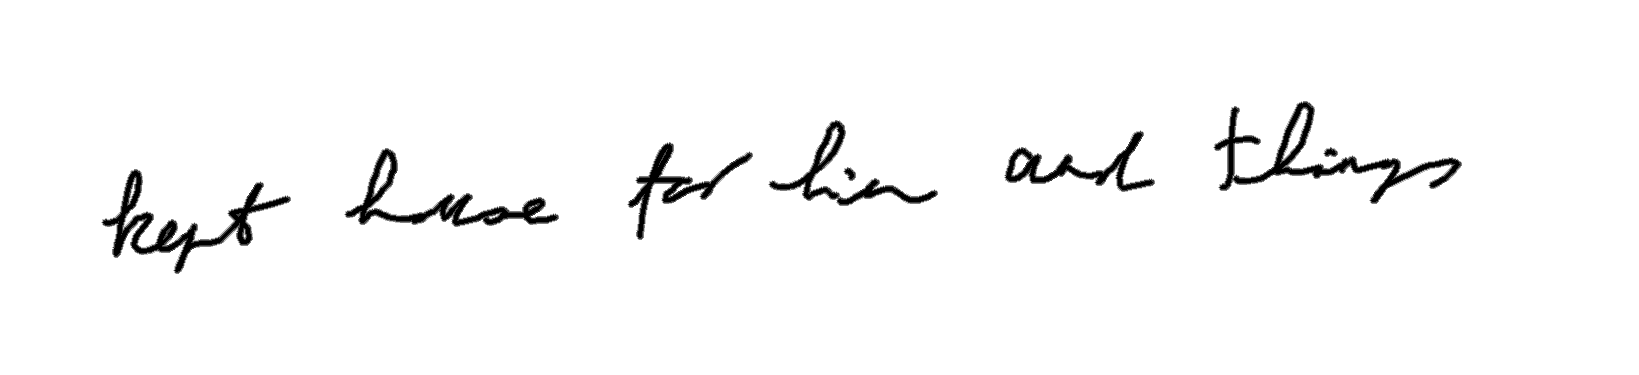 kept house for him and things